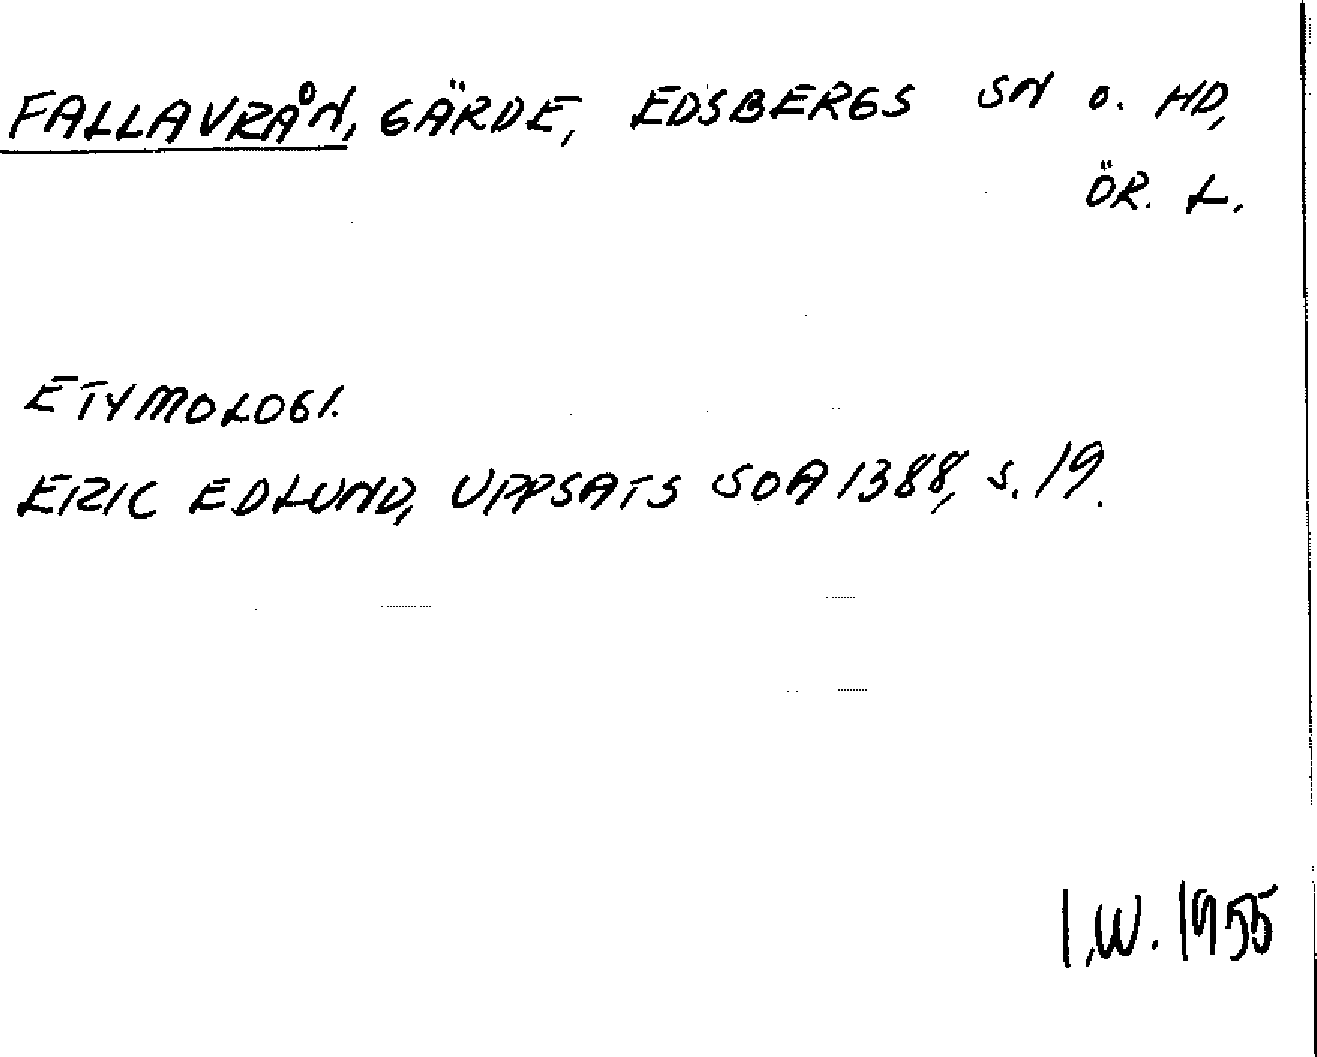 FALLAVRÅN, GÄRDE, EDSBERGS SN o. HD,
ÖR. L.
ETYMOLOGI.
ERIC EDLUND, UPPSATS SOA 1388, s. 19.
I.W. 1955